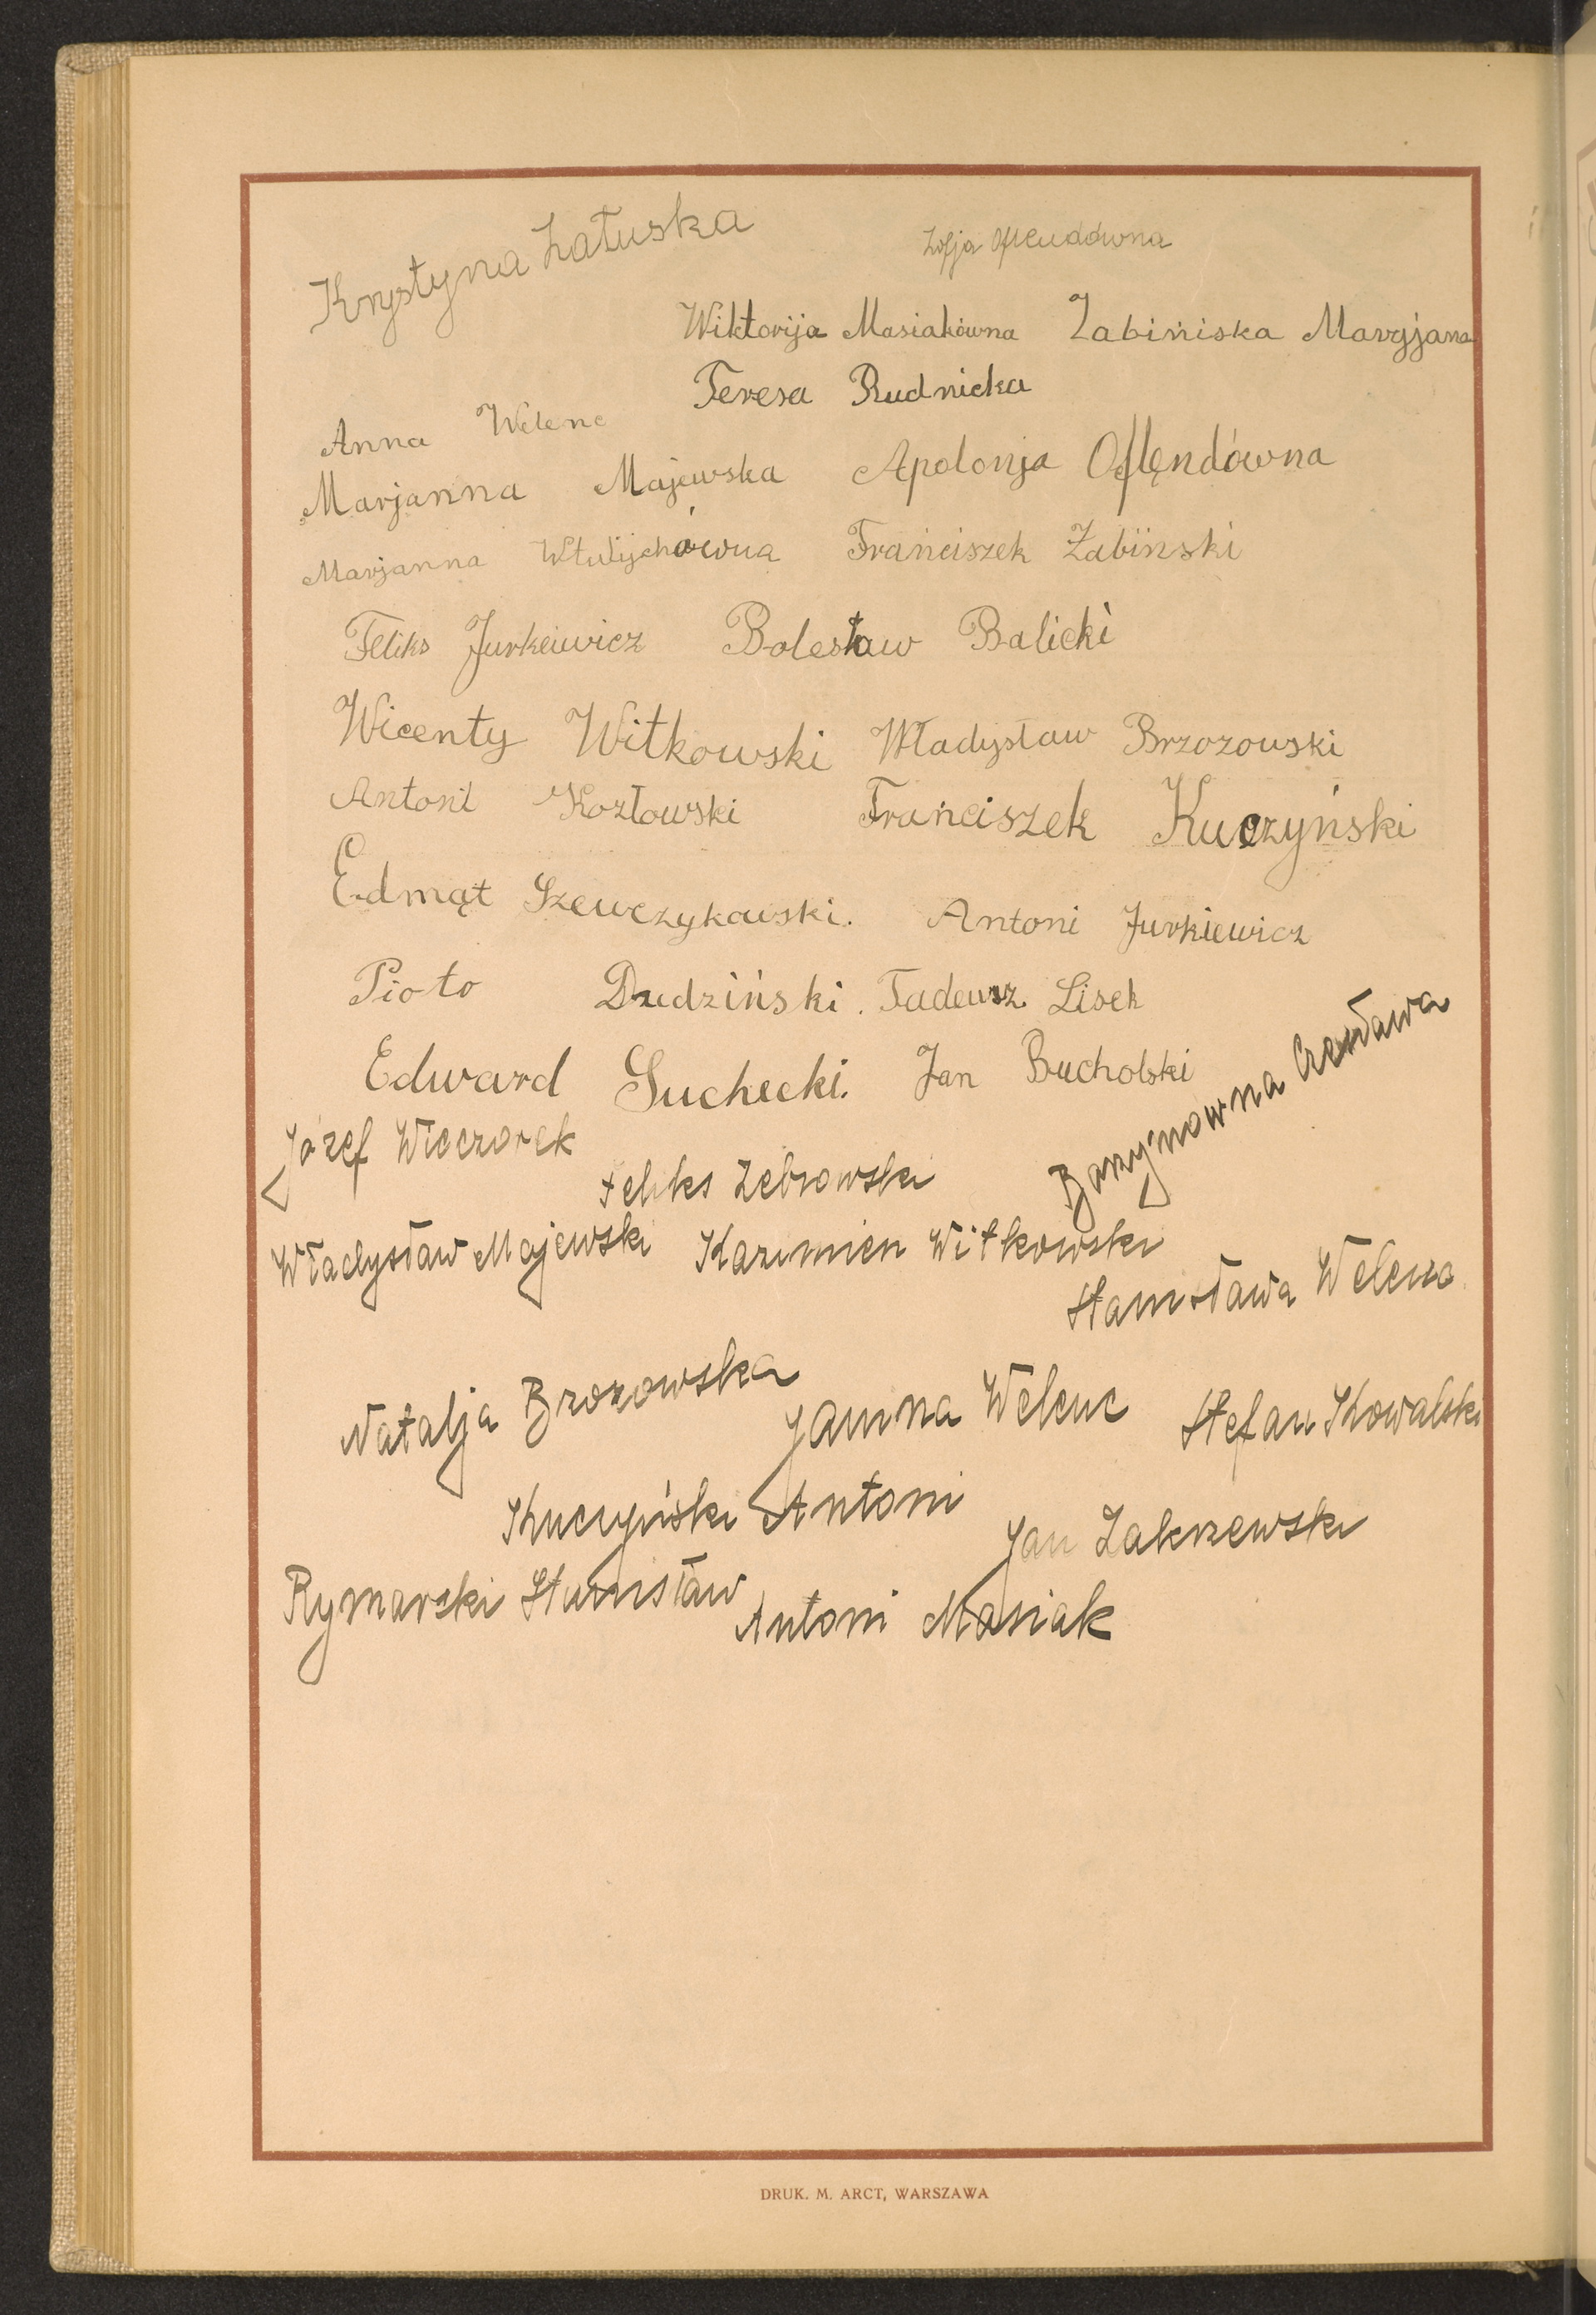 Krystyna Załuska
Zofja Oflendówna
Wiktorija Masiakówna Zabińiska Maryjana
Teresa Rudnicka
Anna Welenc
Marjanna Majewska Apolonja Oflęndówna
Marjanna Franciszek Zabiński
Feliks Jurkeiwicz Bolesław Balicki
Wicenty Witkowski Władysław Brzozowski
Antoni Kozłowski Franciszek Kuczyński
Edmąt Szewczykowski. Antoni Jurkiewicz
Pioto Dzedziński. Tadeusz Lisek
Edward Suchecki. Jan Bucholski
Józef Wieczorek
Feliks Zebrowski
Czesława
Władysław Majewski Kazimierz Witkowski
Stanisława Welenc
Natalja Brzozowska
Janina Welenc Stefan Kowalski
Kuczyński Antoni
Jan Zakrzewski
Rymarski Stanisław
Antoni Masiak
DRUK. M. ARCT, WARSZAWA